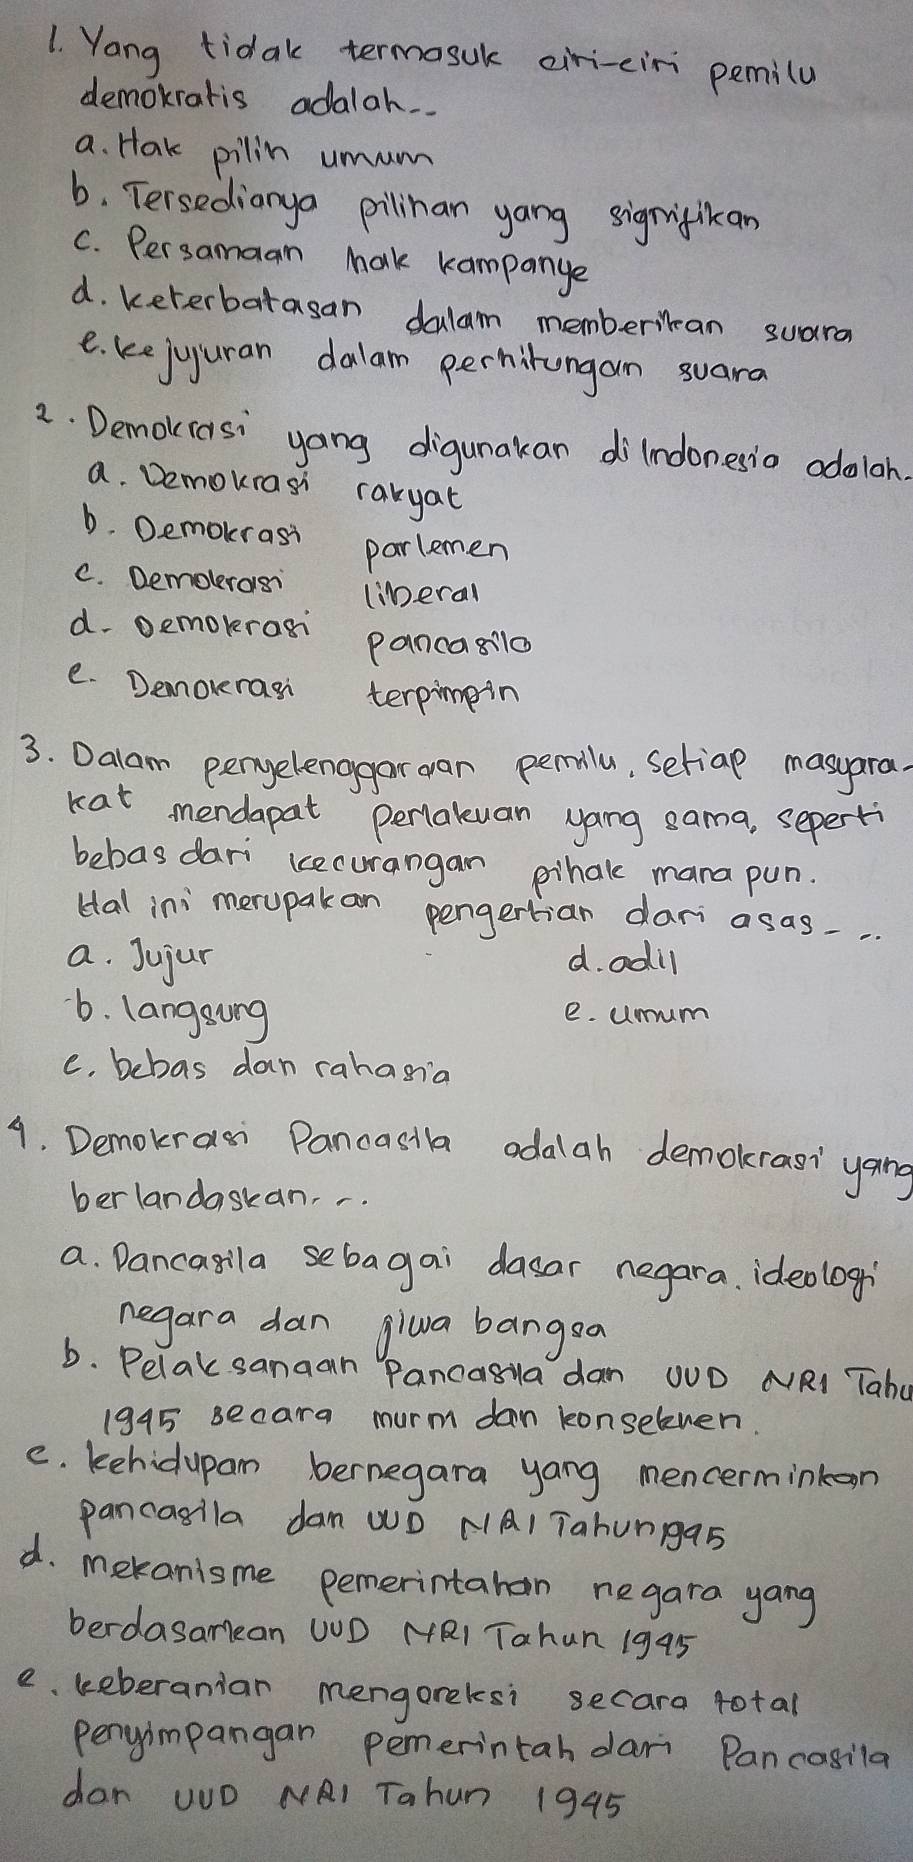 1. Yang tidak termasuk ciri-ciri pemilu
demokratis adalah...
a. Hak pilih umum
b. Tersedianya pilihan yang signifikan
c. Persamaan hak kampanye
d. keterbatasan dalam memberikan suara
e. kejujuran dalam perhitungan suara
2. Demokrasi yang digunakan di Indonesia adalah.
a. Demokrasi rakyat
b. Demokrasi parlemen
c. Demokrasi liberal
d. Demokrasi pancasila
e. Demokrasi terpimpin
3. Dalam penyelenggaraan pemilu, setiap masyara-
kat mendapat perlakuan yang sama, seperti
bebas dari kecurangan pihak mana pun.
Hal ini merupakan pengertian dari asas...
a. Jujur d. adil
b. langsung e. umum
c. bebas dan rahasia
4. Demokrasi Pancasila adalah demokrasi yang
berlandaskan...
a. Pancasila sebagai dasar negara. ideologi
negara dan jiwa bangsa
b. Pelaksanaan Pancasila dan UUD NRI Tahu
1945 secara murm dan konsekuen.
c. kehidupan bernegara yang mencerminkan
pancasila dan UUD NRI Tahun 1945
d. mekanisme pemerintahan negara yang
berdasarkan UUD NRI Tahun 1945
e. keberanian mengoreksi secara total
penyimpangan pemerintah dari Pancasila
dan UUD NRI Tahun 1945